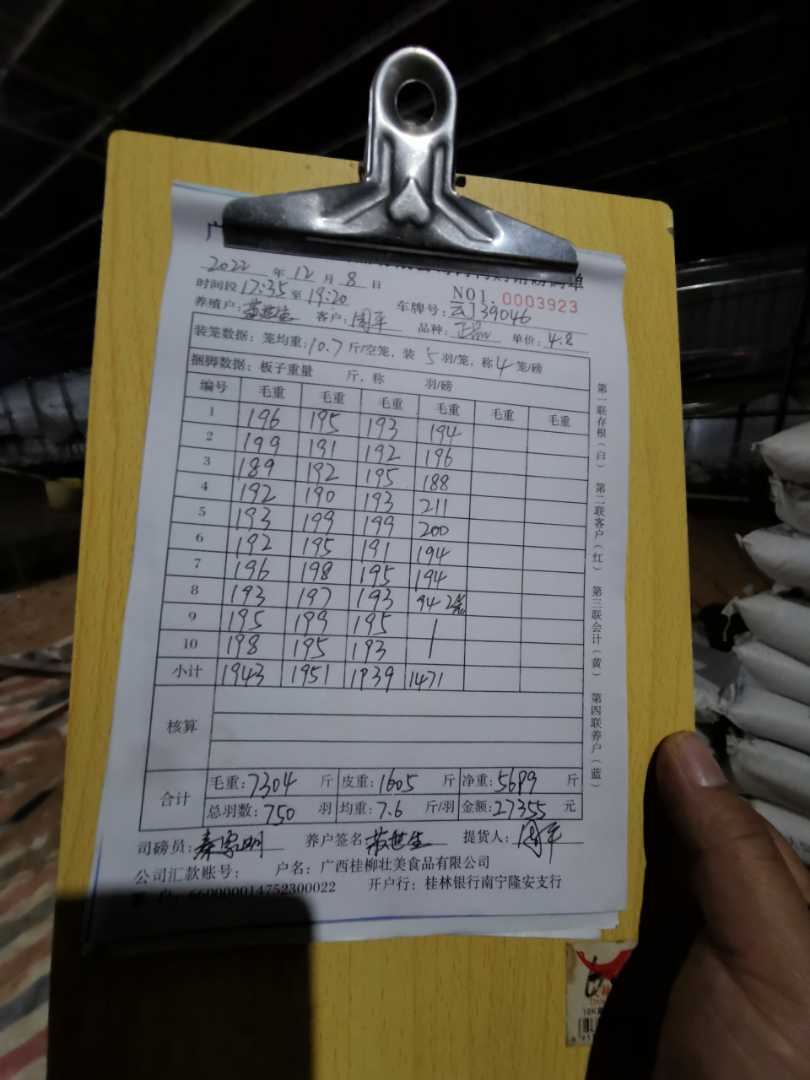 广
2022 年 12 月 8 日
NO1. 0003923
时间段 17:35 至 19:20 车牌号: 云J39046
养殖户: 客户: 周平 品种: 单价: 4.8
装笼数据: 笼均重: 10.7 斤/空笼, 装 5 羽/笼, 称 4 笼/磅
捆脚数据: 板子重量 斤, 称 羽/磅
编号 毛重 毛重 毛重 毛重 毛重 毛重
1 196 195 193 194
2 199 191 192 196
3 189 192 195 188
4 192 190 193 211
5 193 199 199 200
6 192 195 191 194
7 196 198 195 194
8 193 197 193 94 2笼
9 195 199 195
10 198 195 193
小计 1943 1951 1939 1471
核算
合计 毛重: 7304 斤 皮重: 1605 斤 净重: 5699 斤
总羽数: 750 羽 均重: 7.6 斤/羽 金额: 27355 元
司磅员: 养户签名: 提货人: 周平
公司汇款账号: 户名: 广西桂柳壮美食品有限公司
660000014752300022 开户行: 桂林银行南宁隆安支行
第一联存根(白) 第二联客户(红) 第三联会计(黄) 第四联养户(蓝)